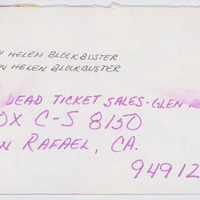 N HELEN BLOCKBUSTER
N HELEN BLOCKBUSTER
DEAD TICKET SALES-GLEN
OX C-S 8150
N RAFAEL, CA.
94912